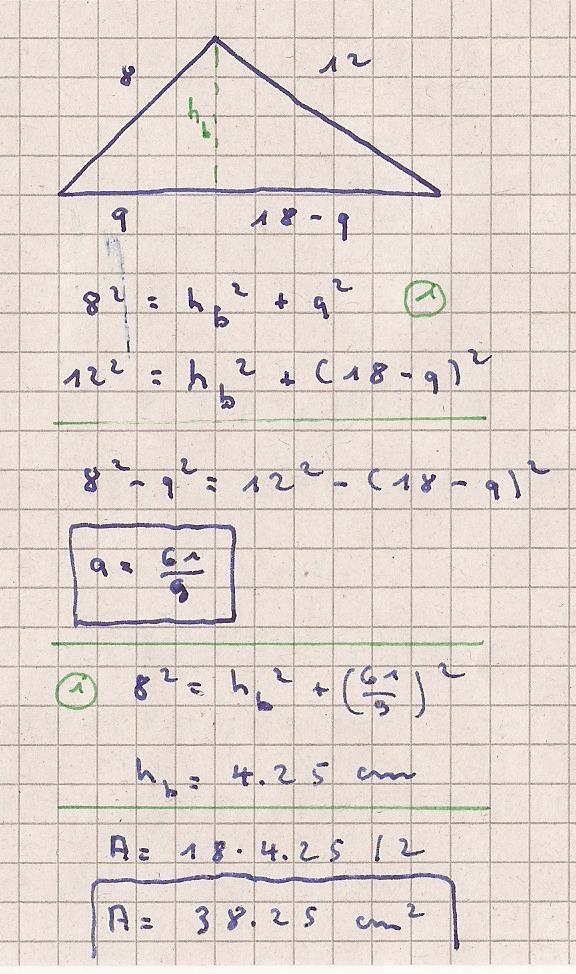 8 12
h_b
q 18-q
8² = h_b² + q² ①
12² = h_b² + (18-q)²
8² - q² = 12² - (18-q)²
q = 61/9
① 8² = h_b² + (61/9)²
h_b = 4.25 cm
A = 18·4.25 / 2
A = 38.25 cm²